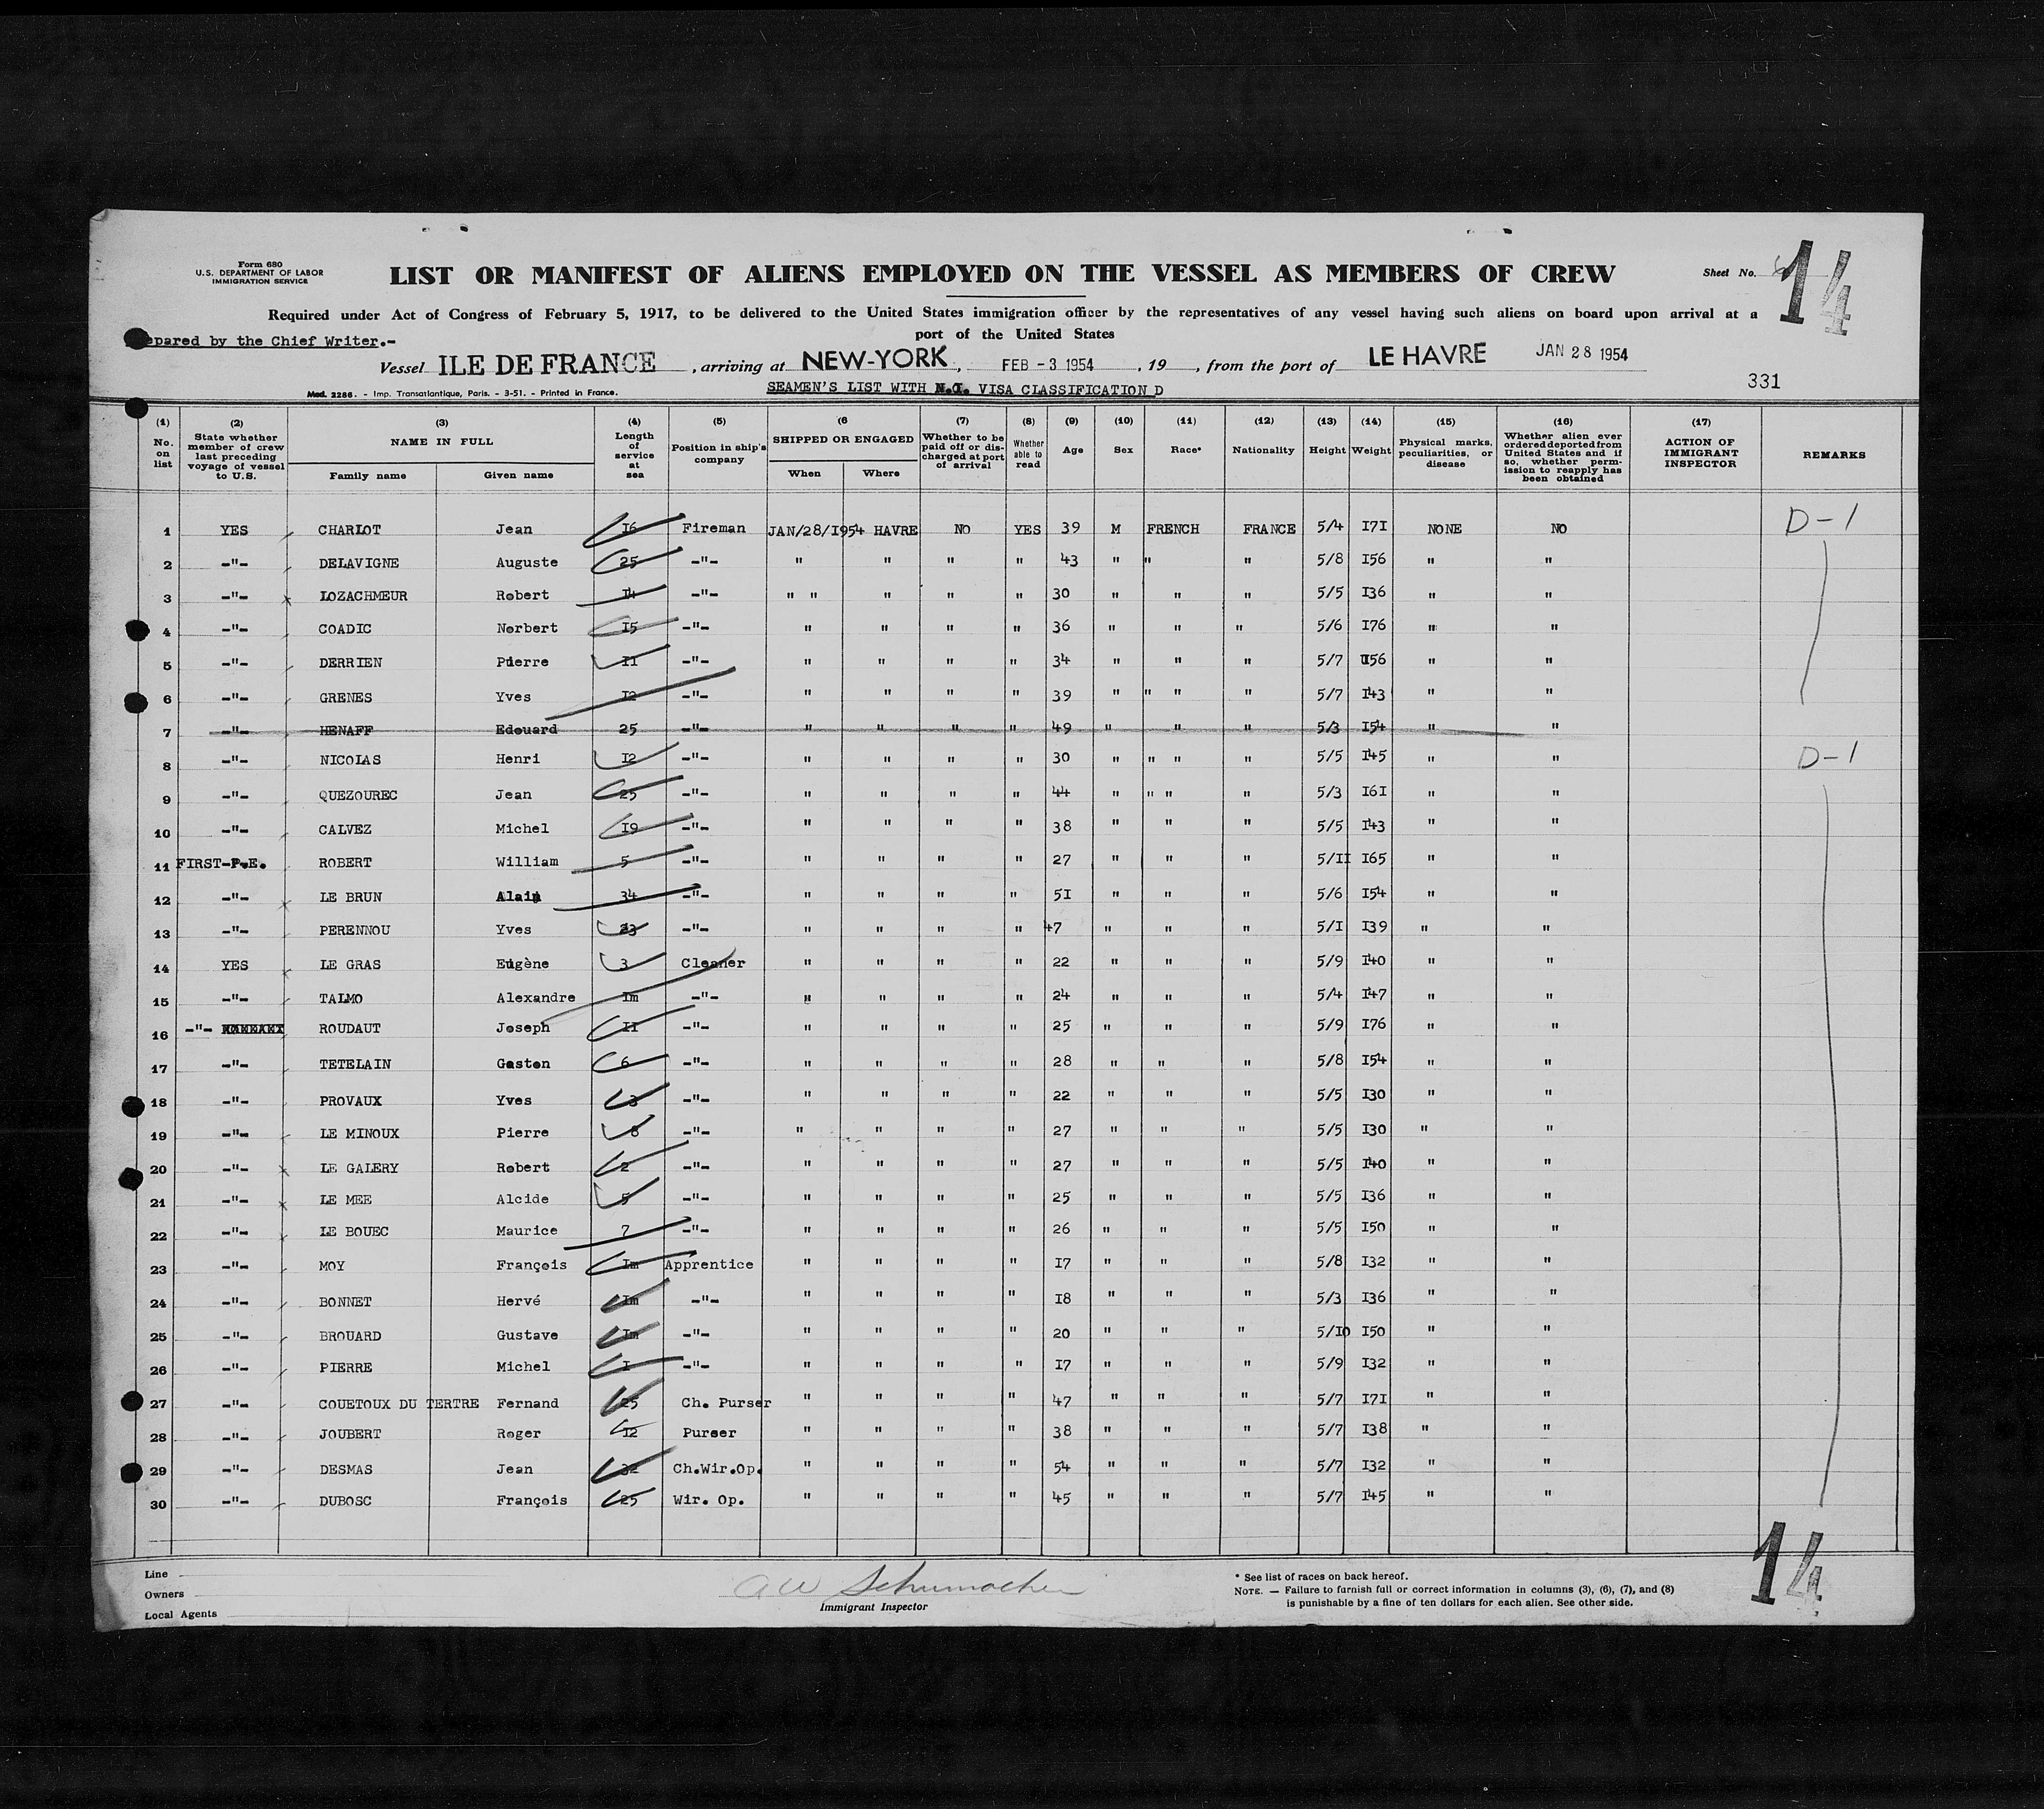 Form 680
U.S. DEPARTMENT OF LABOR
IMMIGRATION SERVICE
LIST OR MANIFEST OF ALIENS EMPLOYED ON THE VESSEL AS MEMBERS OF CREW
Sheet No.
14
Required under Act of Congress of February 5, 1917, to be delivered to the United States immigration officer by the representatives of any vessel having such aliens on board upon arrival at a
port of the United States
epared by the Chief Writer.-
Vessel ILE DE FRANCE, arriving at NEW-YORK, FEB -3 1954, 19 , from the port of LE HAVRE JAN 28 1954
SEAMEN'S LIST WITH N.I. VISA CLASSIFICATION D
331
Mod. 2286. - Imp. Transatlantique, Paris. - 3-51. - Printed in France.
(1) No. on list (2) State whether member of crew last preceding voyage of vessel to U.S. (3) NAME IN FULL Family name Given name (4) Length of service at sea (5) Position in ship's company (6 SHIPPED OR ENGAGED When Where (7) Whether to be paid off or discharged at port of arrival (8) Whether able to read (9) Age (10) Sex (11) Race* (12) Nationality (13) Height (14) Weight (15) Physical marks, peculiarities, or disease (16) Whether alien ever ordered deported from United States and if so, whether permission to reapply has been obtained (17) ACTION OF IMMIGRANT INSPECTOR REMARKS
1 YES CHARLOT Jean I6 Fireman JAN/28/I954 HAVRE NO YES 39 M FRENCH FRANCE 5/4 I7I NONE NO D-1
2 -"- DELAVIGNE Auguste 25 -"- " " " " 43 " " " 5/8 I56 " "
3 -"- LOZACHMEUR Robert I4 -"- " " " " " 30 " " " 5/5 I36 " "
4 -"- COADIC Norbert I5 -"- " " " " 36 " " " 5/6 I76 " "
5 -"- DERRIEN Pierre II -"- " " " " 34 " " " 5/7 I56 " "
6 -"- GRENES Yves I2 -"- " " " " 39 " " " " 5/7 I43 " "
7 -"- HENAFF Edouard 25 -"- " " " " 49 " " " 5/3 I54 " "
8 -"- NICOLAS Henri I2 -"- " " " " 30 " " " " 5/5 I45 " " D-1
9 -"- QUEZOUREC Jean 25 -"- " " " " 44 " " " " 5/3 I6I " "
10 -"- CALVEZ Michel I9 -"- " " " " 38 " " " 5/5 I43 " "
11 FIRST-P.E. ROBERT William 5 -"- " " " " 27 " " " 5/II I65 " "
12 -"- LE BRUN Alain 34 -"- " " " " 5I " " " 5/6 I54 " "
13 -"- PERENNOU Yves 23 -"- " " " " 47 " " " 5/I I39 " "
14 YES LE GRAS Eugène 3 Cleaner " " " " 22 " " " 5/9 I40 " "
15 -"- TALMO Alexandre Im -"- " " " " 24 " " " 5/4 I47 " "
16 -"- ROUDAUT Joseph II -"- " " " " 25 " " " 5/9 I76 " "
17 -"- TETELAIN Gaston 6 -"- " " " " 28 " " " 5/8 I54 " "
18 -"- PROVAUX Yves 3 -"- " " " " 22 " " " 5/5 I30 " "
19 -"- LE MINOUX Pierre 8 -"- " " " " 27 " " " 5/5 I30 " "
20 -"- LE GALERY Robert 2 -"- " " " " 27 " " " 5/5 I40 " "
21 -"- LE MEE Alcide 5 -"- " " " " 25 " " " 5/5 I36 " "
22 -"- LE BOUEC Maurice 7 -"- " " " " 26 " " " 5/5 I50 " "
23 -"- MOY François Im Apprentice " " " " I7 " " " 5/8 I32 " "
24 -"- BONNET Hervé Im -"- " " " " I8 " " " 5/3 I36 " "
25 -"- BROUARD Gustave Im -"- " " " " 20 " " " 5/I0 I50 " "
26 -"- PIERRE Michel I -"- " " " " I7 " " " 5/9 I32 " "
27 -"- COUETOUX DU TERTRE Fernand 25 Ch. Purser " " " " 47 " " " 5/7 I7I " "
28 -"- JOUBERT Roger I2 Purser " " " " 38 " " " 5/7 I38 " "
29 -"- DESMAS Jean 32 Ch.Wir.Op. " " " " 54 " " " 5/7 I32 " "
30 -"- DUBOSC François 25 Wir. Op. " " " " 45 " " " 5/7 I45 " "
14
Line
Owners
Local Agents
AW Schumacher
Immigrant Inspector
* See list of races on back hereof.
NOTE. — Failure to furnish full or correct information in columns (3), (6), (7), and (8)
is punishable by a fine of ten dollars for each alien. See other side.